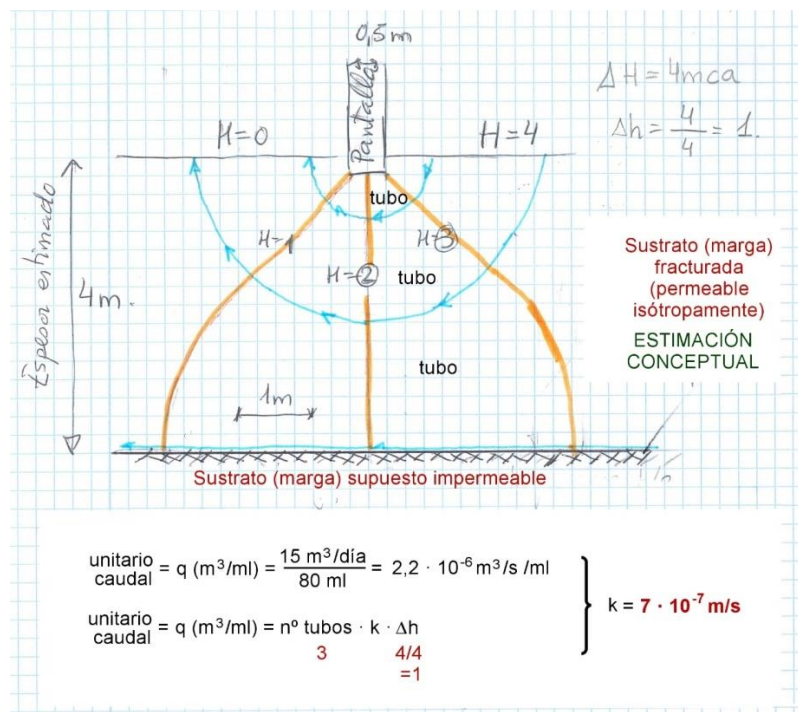 0,5 m
Pantalla
H=0
H=4
ΔH = 4mca
Δh = 4/4 = 1.
Espesor estimado
4m.
tubo
H=1
H=3
H=2
tubo
tubo
1m
Sustrato (marga)
fracturada
(permeable
isótropamente)
ESTIMACIÓN
CONCEPTUAL
Sustrato (marga) supuesto impermeable
unitario caudal = q (m³/ml) = 15 m³/día / 80 ml = 2,2 · 10⁻⁶ m³/s /ml
unitario caudal = q (m³/ml) = nº tubos · k · Δh
3 4/4
=1
k = 7 · 10⁻⁷ m/s